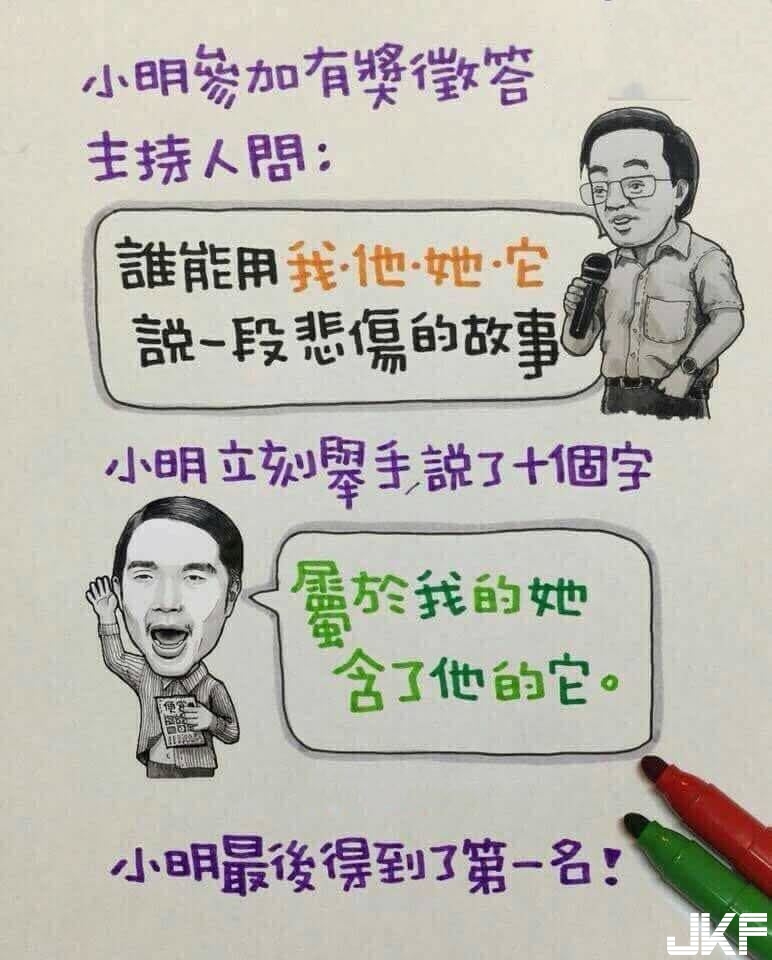 小明參加有獎徵答
主持人問：
誰能用我·他·她·它
說一段悲傷的故事
小明立刻舉手,說了十個字
屬於我的她
含了他的它。
便當
小明最後得到了第一名!
JKF